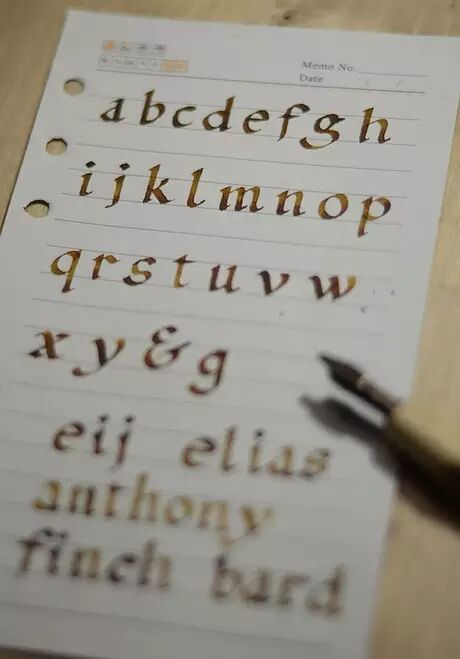 Memo No.
Date / /
a b c d e f g h
i j k l m n o p
q r s t u v w
x y & g
eij elias
anthony
finch bard